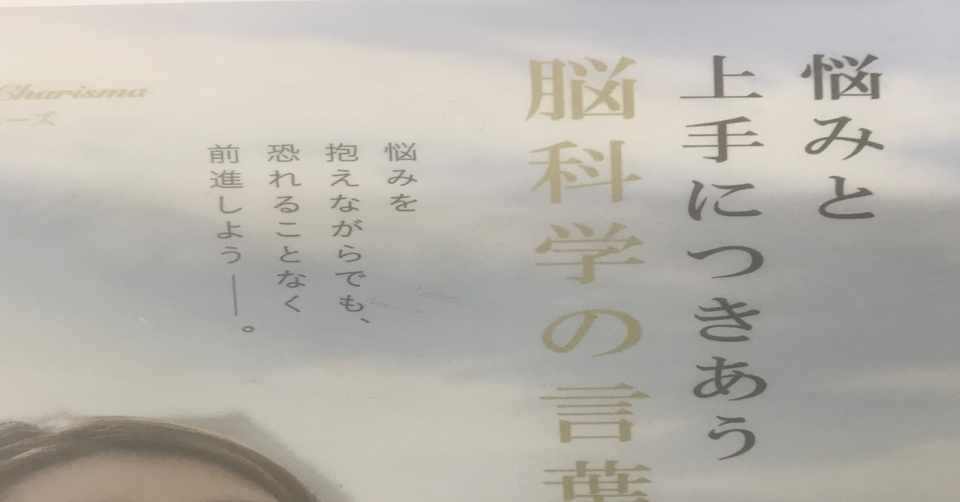 悩みと
上手につきあう
脳科学の言葉
悩みを
抱えながらでも、
恐れることなく
前進しよう――。
Charisma
ーズ